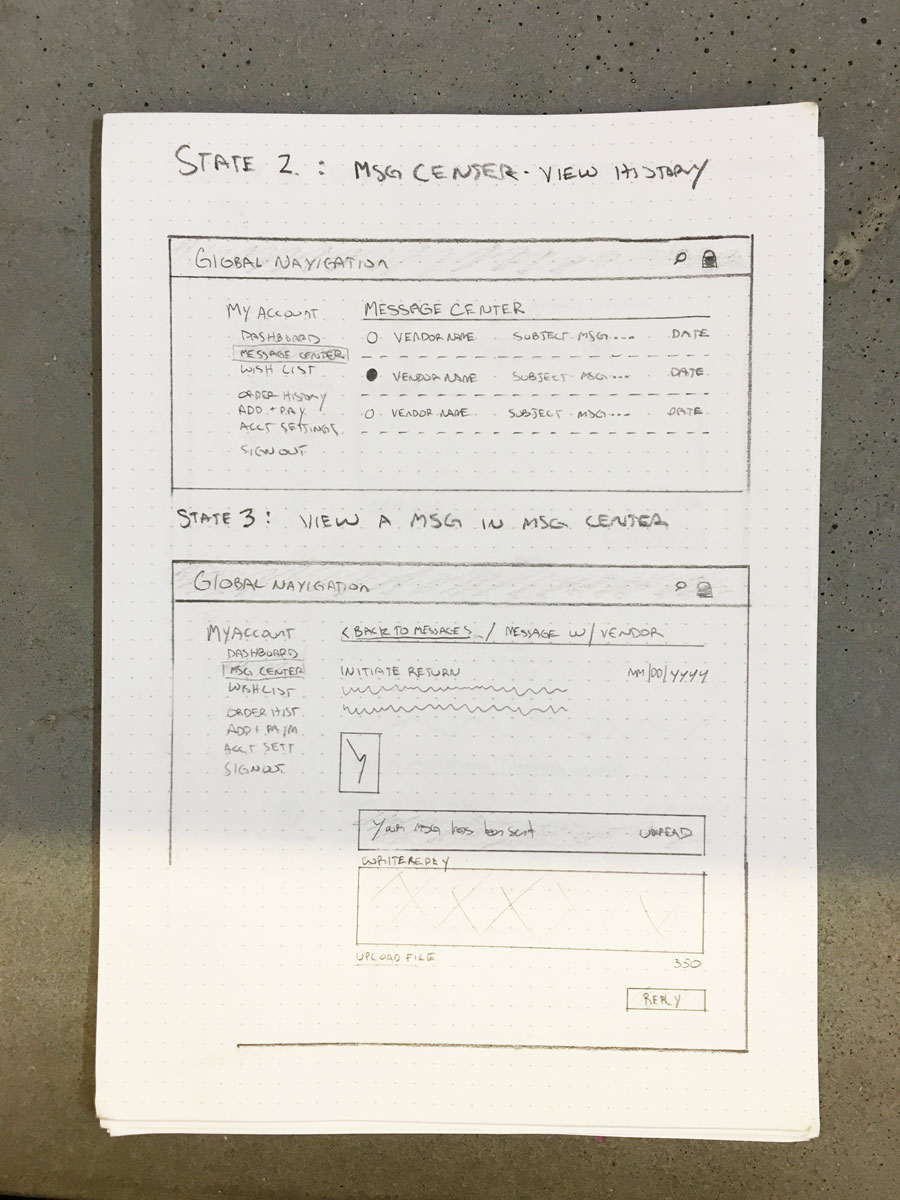 STATE 2. : MSG CENTER - VIEW HISTORY
GLOBAL NAVIGATION
MY ACCOUNT
DASHBOARD
MESSAGE CENTER
WISH LIST
ORDER HISTORY
ADD. + PAY
ACCT SETTINGS
SIGN OUT
MESSAGE CENTER
VENDOR NAME SUBJECT MSG... DATE
VENDOR NAME SUBJECT MSG... DATE
VENDOR NAME SUBJECT MSG... DATE
STATE 3: VIEW A MSG IN MSG CENTER
GLOBAL NAVIGATION
MY ACCOUNT
DASHBOARD
MSG CENTER
WISH LIST
ORDER HIST.
ADD + PAYM
ACCT SETT
SIGN OUT
< BACK TO MESSAGES / MESSAGE W/ VENDOR
INITIATE RETURN MM/DD/YYYY
Your msg has been sent UNREAD
WRITE REPLY
UPLOAD FILE 350
REPLY